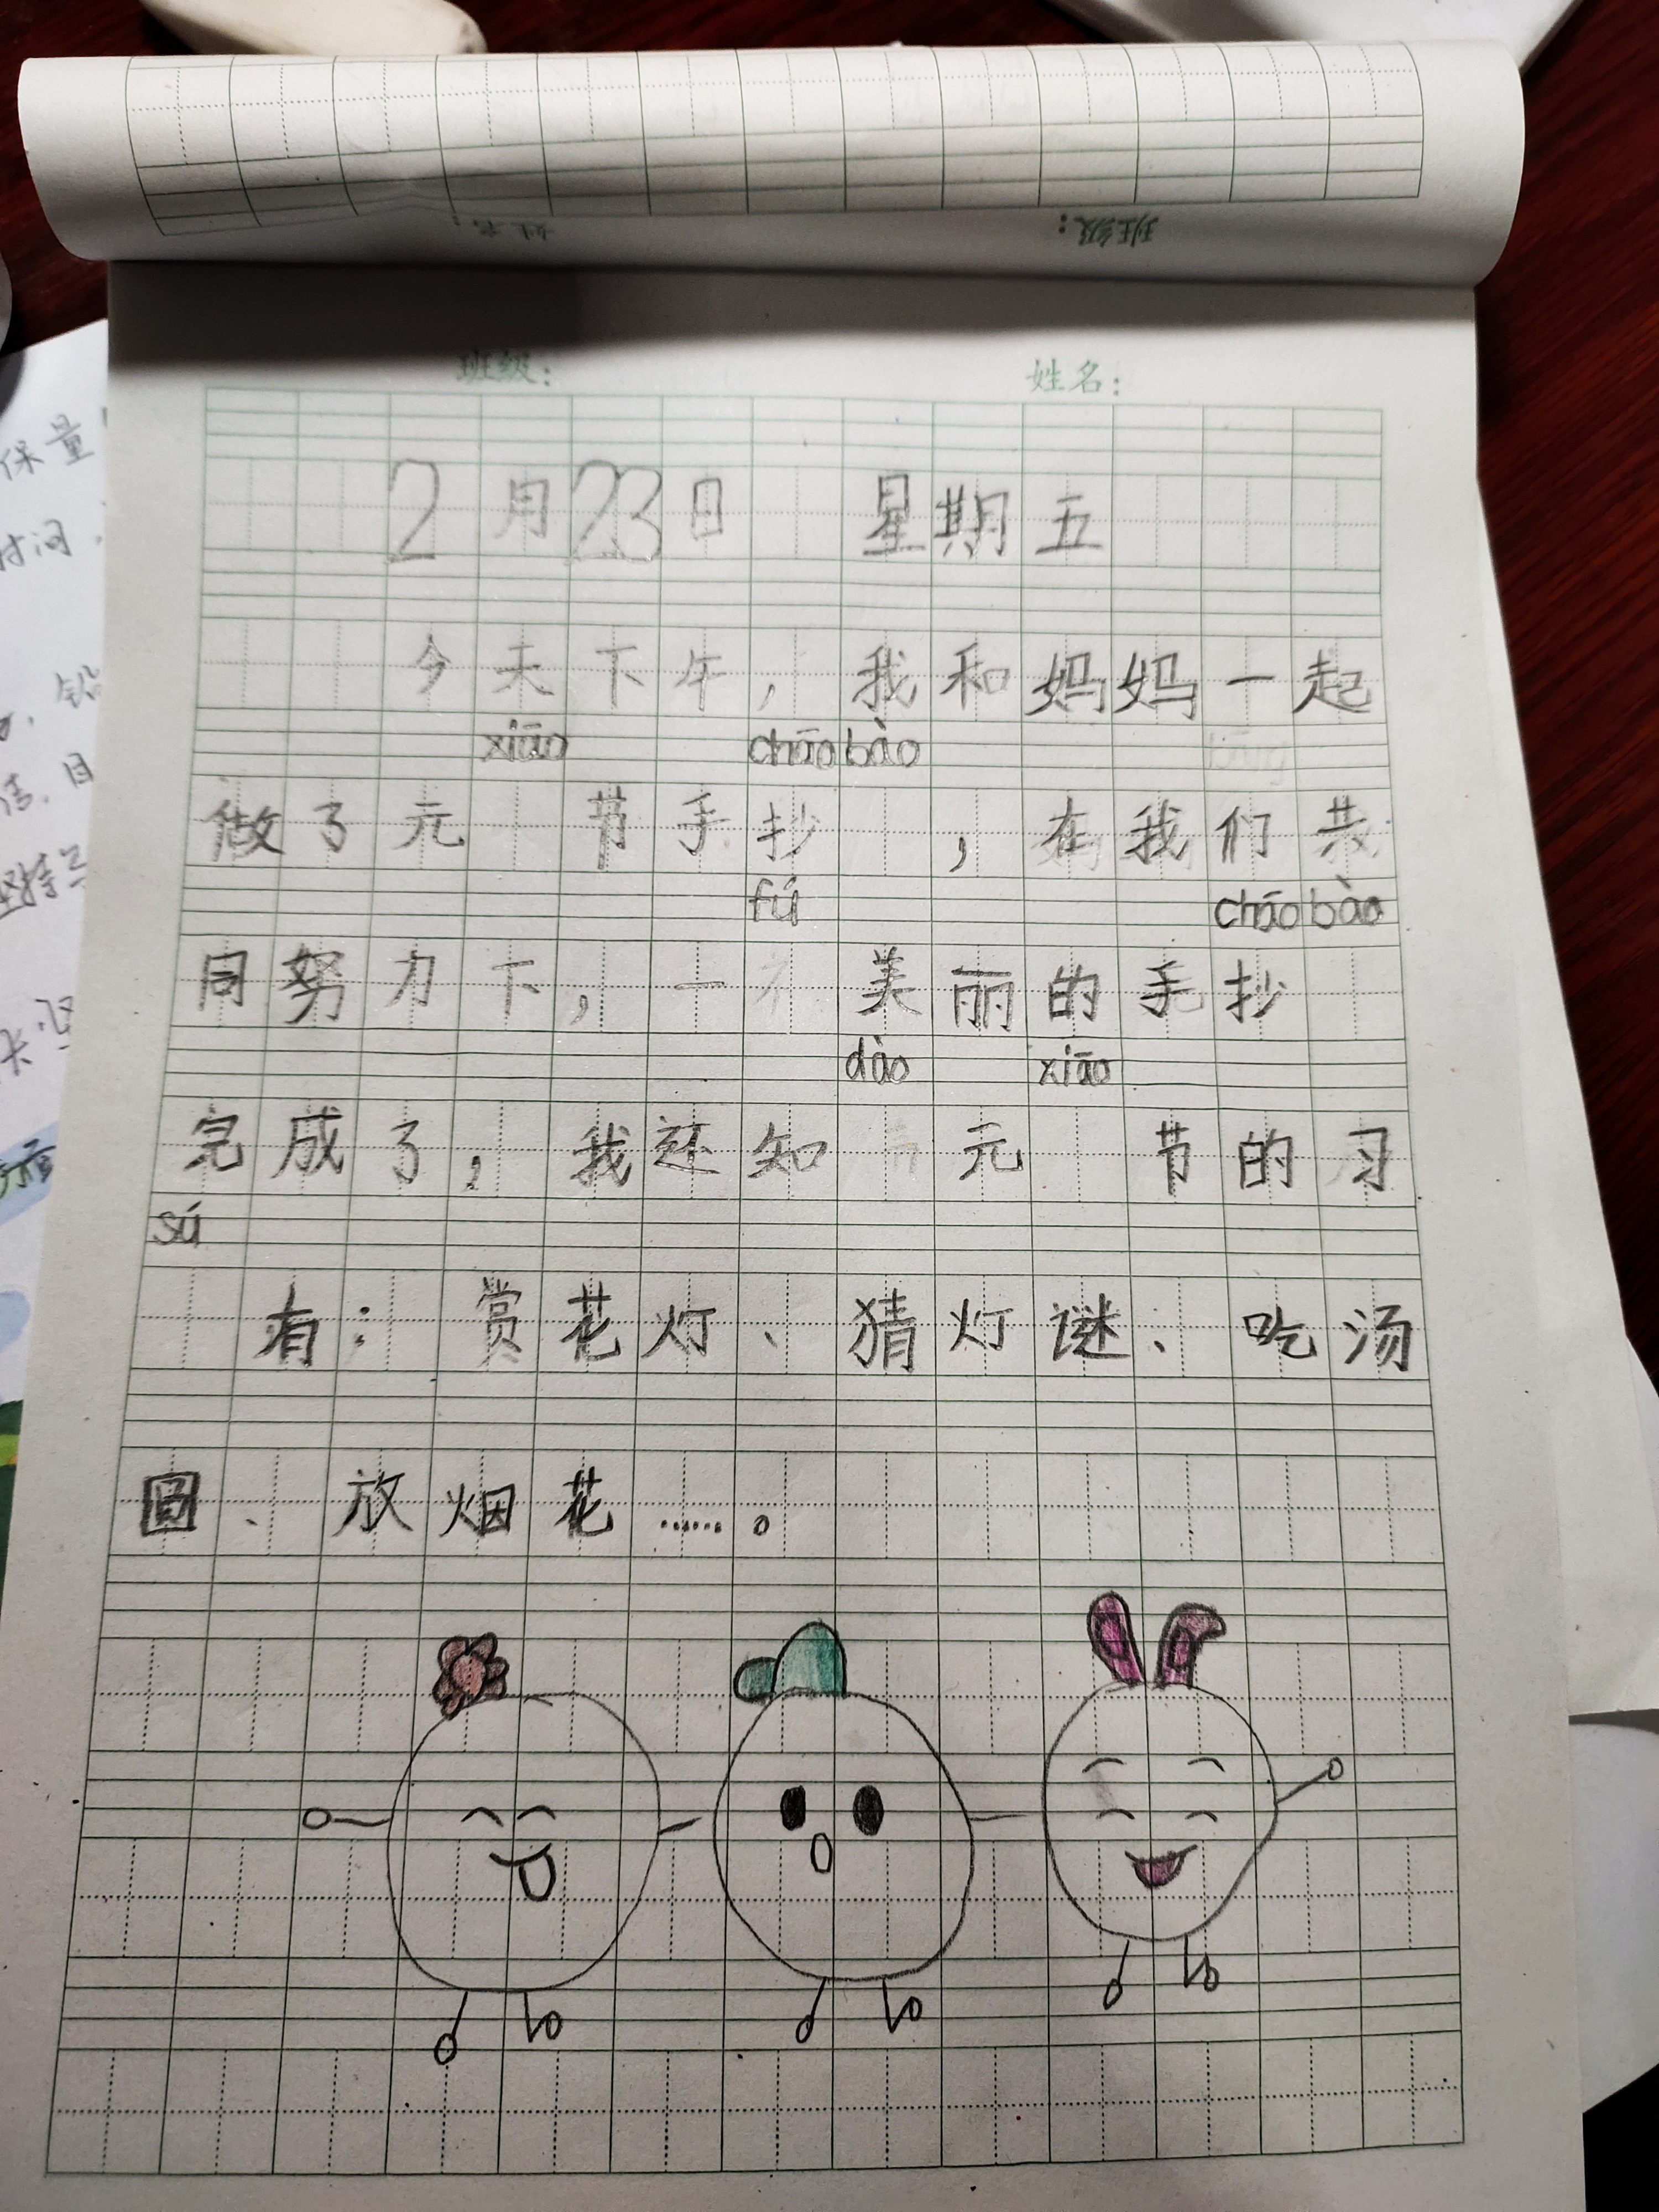 班级: 姓名:
班级: 姓名:
2月23日 星期五
今天下午，我和妈妈一起
xiāo chāo bào
做了元 节手抄 ，在我们共
fú chāo bào
同努力下，一 美丽的手抄
dào xiāo
完成了，我还知 元 节的习
sú
有：赏花灯、猜灯谜、吃汤
圆、放烟花……。
保量
时间
铅
目
坚持